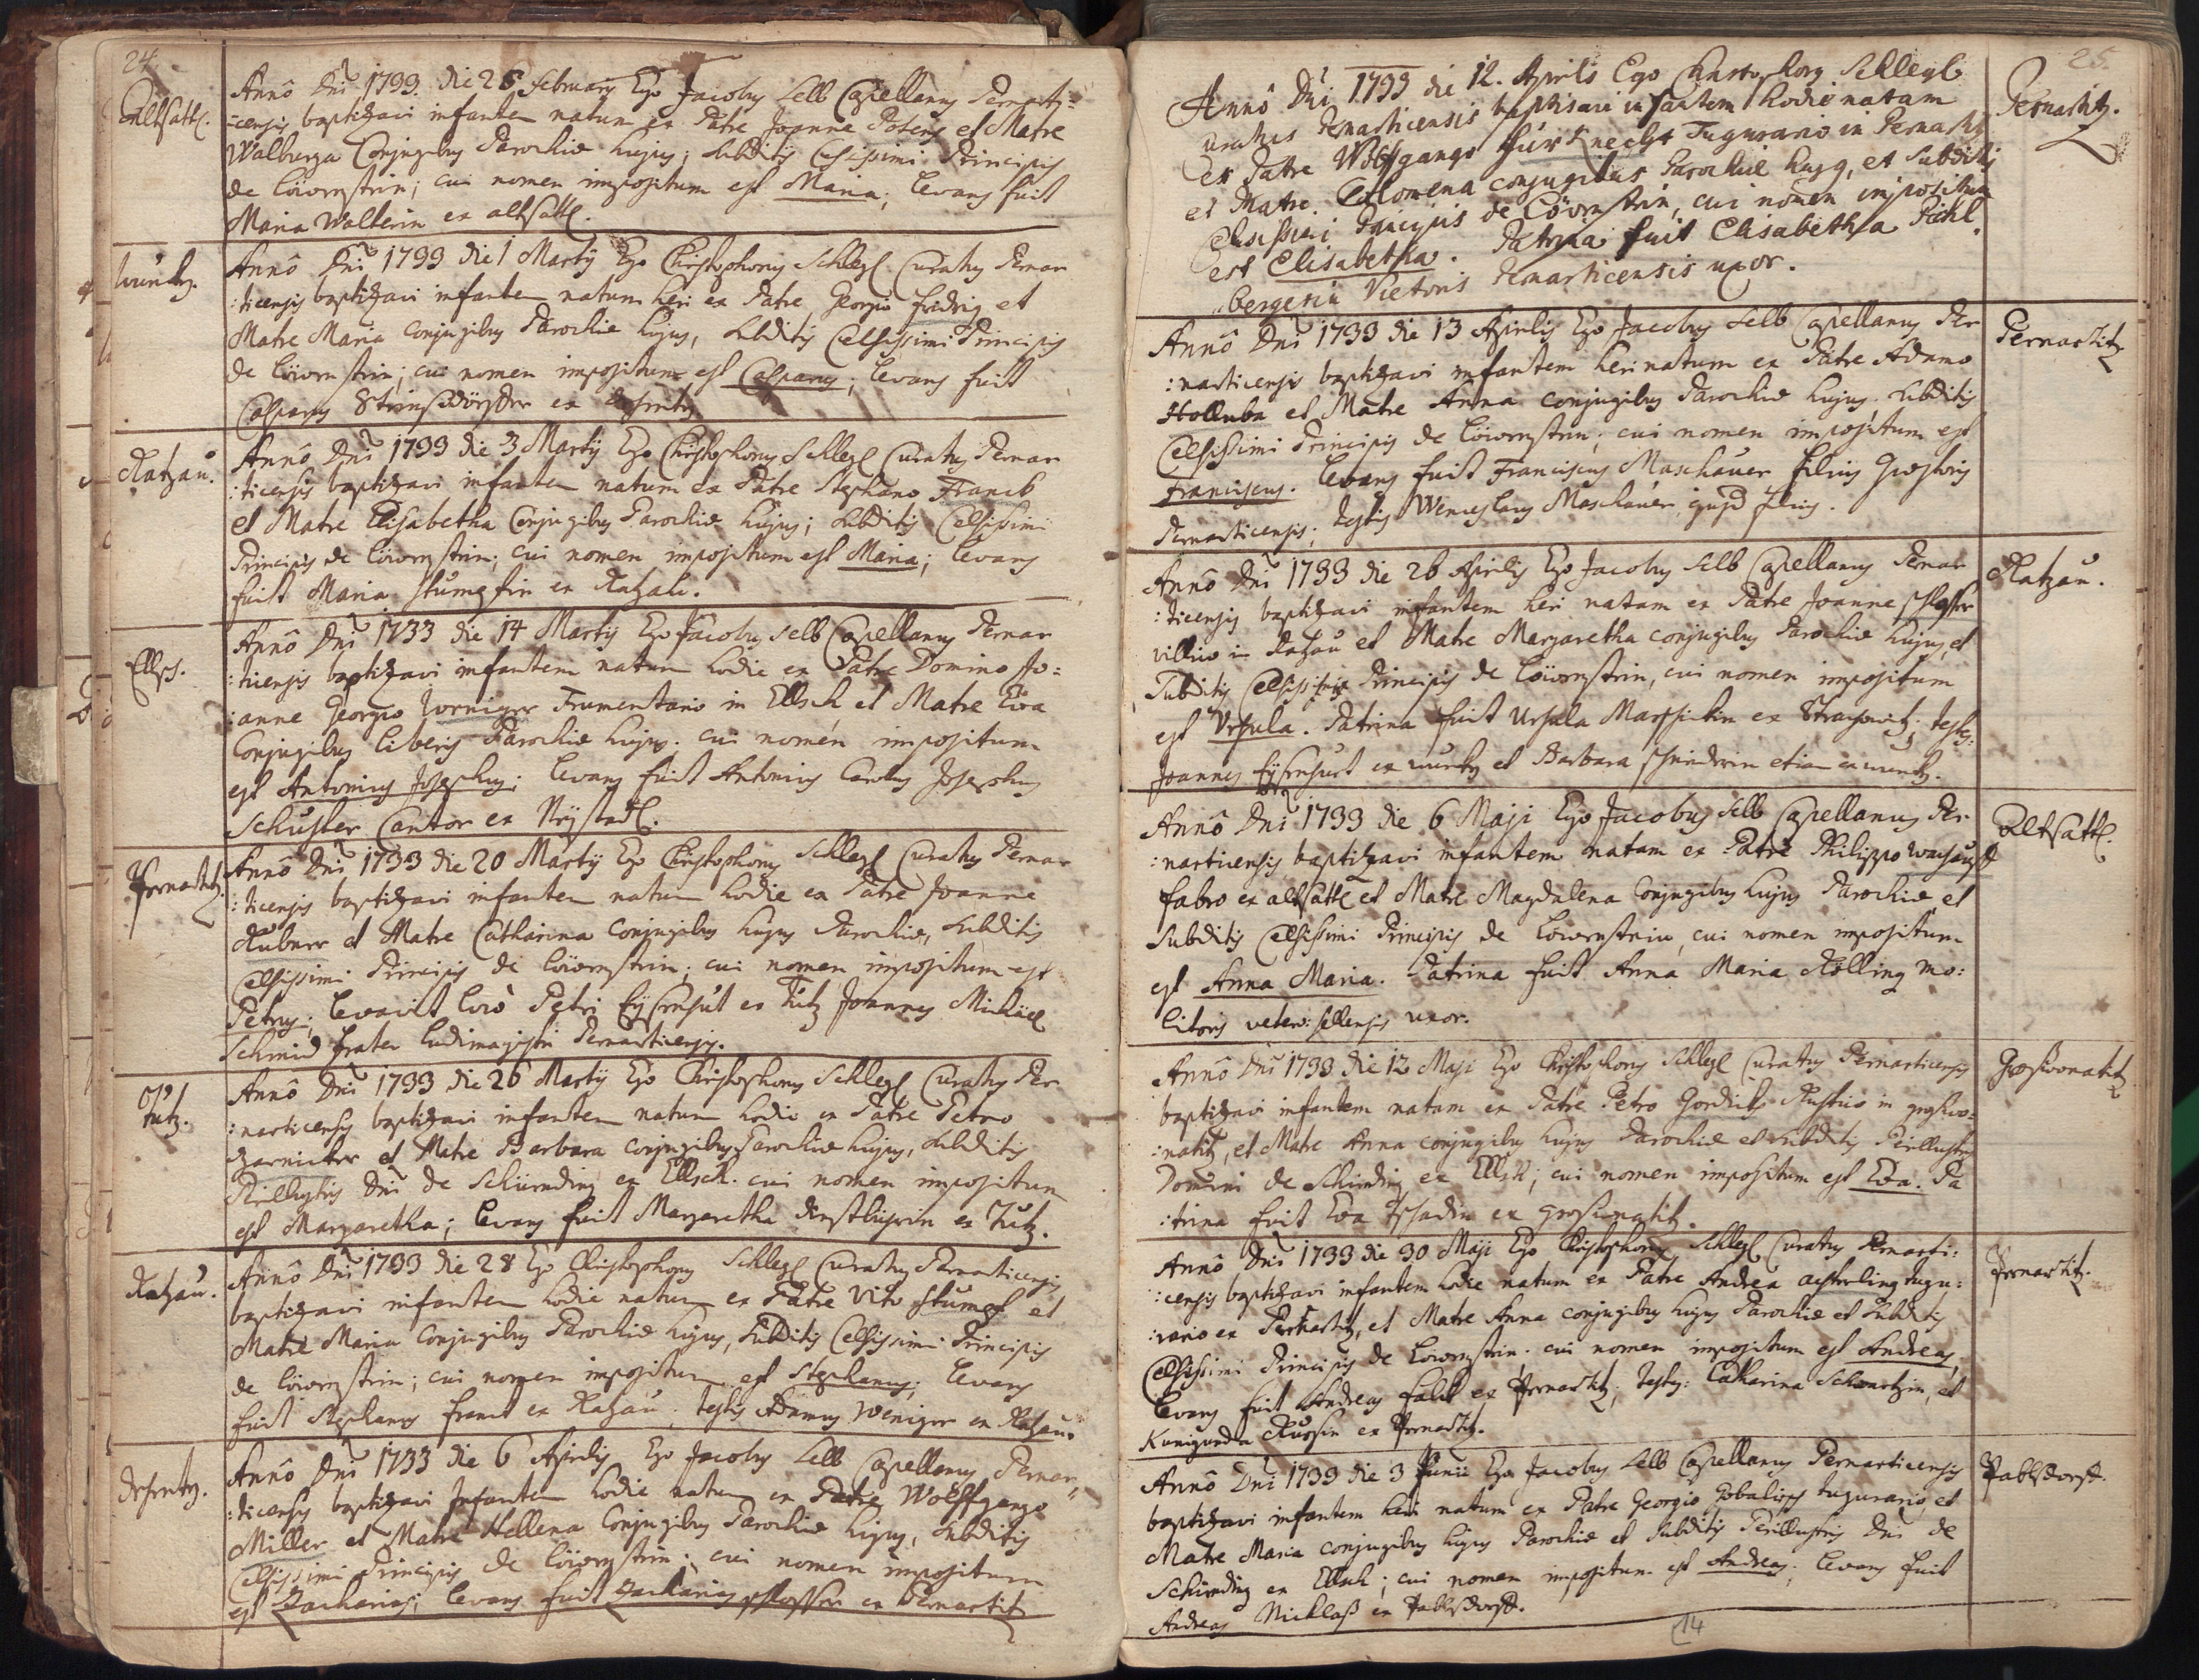 24.
Altsattl.
Annô Dni 1733. die 28 February Ego Jacobus Selb Capellanus Pernarti=
=censis baptizavi infantem natum ex Patre Joanne et Matre
Walburga Conjugibus Parochiæ hujus; subditis Celsissimi Principis
de Löwenstein; cui nomen impositum est Maria; levans fuit
Maria Walterin ex altsattl.
Annô Dni 1733 die 1 Martij Ego Christophorus Schlegl Curatus Pernar
:ticensis baptizavi infantem natum heri ex Patre Georgio fredrig et
Matre Maria conjugibus Parochiæ hujus, subditis Celsissimi Principis
de Löwenstein; cui nomen impositum est Casparus; levans fuit
Casparus ex
Razau.
Annô Dni 1733 die 3 Martij Ego Christophorus Schlegl Curatus Pernar
:ticensis baptizavi infantem natum ex Patre Stephano Franck
et Matre Elisabetha Conjugibus Parochiæ hujus; subditis Celsissimi
Principis de Löwenstein; cui nomen impositum est Maria; levans
fuit Maria Stumpfin ex Razau.
Ellsch.
Annô Dni 1733 die 14 Martij Ego Jacobus Selb Capellanus Pernar
:ticensis baptizavi infantem natum hodie ex Patre Domino Jo:
:anne Georgio Frumentario in Ellsch et Matre Eva
Conjugibus liberis Parochiæ hujus. cui nomen impositum
est Antonius Josephus; levans fuit Antonius Carolus Josephus
Schuster Cantor ex Neÿstadl.
Pernartitz.
Annô Dni 1733 die 20 Martij Ego Christophorus Schlegl Curatus Pernar
:ticensis baptizavi infantem natum hodie ex Patre Joanne
Kubner et Matre Catharina conjugibus hujus Parochiæ, subditis
Celsissimi Principis de Löwenstein; cui nomen impositum est
Petrus; levavit locô Petri ex Tutz Joannes Michael
Schmid frater ludimagistri Pernarticensis.
Tutz.
Annô Dni 1733 die 26 Martij Ego Christophorus Schlegl Curatus Per
:narticensis baptizavi infantem natum hodie ex Patre Petro
et Matre Barbara conjugibus Parochiæ hujus, subditis
Perillustris Dni de Schirnding ex Ellsch. cui nomen impositum
est Margaretha; levans fuit Margaretha ex Tutz.
Razau.
Annô Dni 1733 die 28 Ego Christophorus Schlegl Curatus Pernarticensis
baptizavi infantem hodie natum ex Patre Vito Stumpf et
Matre Maria Conjugibus Parochiæ hujus, subditis Celsissimi Principis
de Löwenstein; cui nomen impositum est Stephanus; levans
fuit Stephanus franck ex Razau. testis Adamus Weniger ex Razau.
Annô Dni 1733 die 6 Aprilis Ego Jacobus Selb Capellanus Pernar
:ticensis baptizavi Infantem hodie natum ex Patre Wolffgango
Miller et Matre Hellena Conjugibus Parochiæ hujus, subditis
Celsissimi Principis de Löwenstein; cui nomen impositum
est Zacharias; levans fuit Zacharias schlosser ex Pernartitz
25.
Pernartitz.
Annô Dni 1733 die 12. Aprils Ego Christophorg Schlegl
uratus Pernarticensis baptisavi infantem hodie natam
ex Patre Wolffgango Tugurario in Pernartiz
et Matre Philomena conjugibus Parochiæ hujg, et subditis
Celsissimi Principis de Löwenstein, cui nomen impositum
est Elisabetha. Patrina fuit Elisabetha Pichl-
bergerin Pictoris Pernarticensis uxor.
Pernartitz
Annô Dni 1733 die 13 Aprilis Ego Jacobus Selb Capellanus Per
:narticensis baptizavi infantem heri natum ex Patre Adamo
Holluba et Matre Anna conjugibus Parochiæ hujus. subditis
Celsissimi Principis de Löwenstein; cui nomen impositum est
Franciscus. levans fuit Franciscus Maschauer filius Quæstoris
Pernarticensis; testis Wenceslaus Maschauer, ejusd filius.
Razau.
Annô Dni 1733 die 26 Aprilis Ego Jacobus Selb Capellanus Pernar
:ticensis baptizavi infantem heri natam ex Patre Joanne schlosser
villico in Razau et Matre Margaretha conjugibus Parochiæ hujus, et
Subditis Celsissimi Principis de Löwenstein, cui nomen impositum
est Ursula. Patrina fuit Ursula ex testes:
Joannes ex et Barbara etiam ex
Altsattl.
Annô Dni 1733 die 6 Maji Ego Jacobus Selb Capellanus Per-
:narticensis baptizavi infantem natam ex Patre Philippo
fabro ex altsattl et Matre Magdalena Conjugibus hujus Parochiæ et
Subditis Celsissimi Principis de Löwenstein, cui nomen impositum
est Anna Maria. Patrina fuit Anna Maria Kölling mo:
litoris uxor.
Annô Dni 1733 die 12 Maji Ego Christophorus Schlegl Curatus Pernarticensis
baptizavi infantem natam ex Patre Petro Rustico in
:natitz, et Matre Anna conjugibus hujus Parochiæ et subditis Perillustris
Domini de Schirnding ex Ellsch; cui nomen impositum est Eva. Pa
:trina fuit Eva ex
Pernartitz.
Annô Dni 1733 die 30 Maji Ego Christophorus Schlegl Curatus Pernarti:
:censis baptizavi infantem hodie natum ex Patre Andrea tugu:
:rario ex Pernartitz, et Matre Anna conjugibus hujus Parochiæ et subditis
Celsissimi Principis de Löwenstein. cui nomen impositum est Andreas,
levans fuit Andreas ex Pernartitz; testes: Catharina Schwartzin, et
Kunigunda ex Pernartitz.
Pablsdorff.
Annô Dni 1733 die 3 Junii Ego Jacobus Selb Capellanus Pernarticensis
baptizavi infantem heri natum ex Patre Georgio tugurario, et
Matre Maria conjugibus hujus Parochiæ et subditis Perillustris Dni de
Schirnding ex Ellsch; cui nomen impositum est Andreas; levans fuit
Andreas Nicklaß ex Pablsdorff.
14